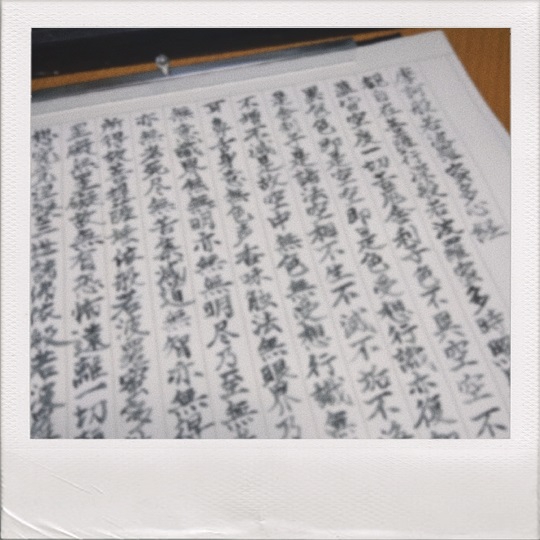 摩訶般若波羅蜜多心経
觀自在菩薩行深般若波羅蜜多時照
蘊皆空度一切苦厄舍利子色不異空空不
異色色即是空空即是色受想行識亦復如
是舍利子是諸法空相不生不滅不垢不
不增不減是故空中無色無受想行識無
耳鼻舌身意無色声香味触法無眼界乃
無意識界無無明亦無無明尽乃至無
亦無老死尽無苦集滅道無智亦無得
所得故菩提薩埵依般若波羅蜜多
罣礙無罣礙故無有恐怖遠離一切顛
想究竟涅槃三世諸仏依般若波羅